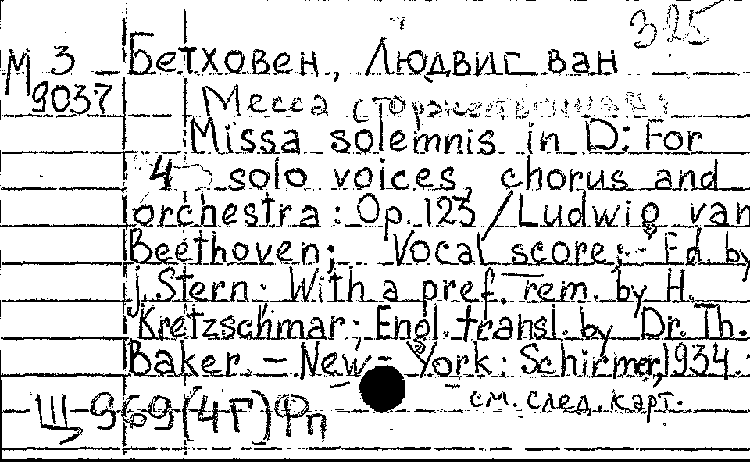 325
М 3 Бетховен, Людвиг ван
9037 Месса (торжественная)
Missa solemnis in D: For
4 solo voices, chorus and
orchestra: Op. 123 / Ludwig van
Beethoven; Vocal score; Ed. by
J. Stern. With a pref. rem. by H.
Kretzschmar; Engl. transl. by Dr. Th.
Baker. – New-York: Schirmer, 1934.
см. след. карт.
Щ-969(4Г)Фп